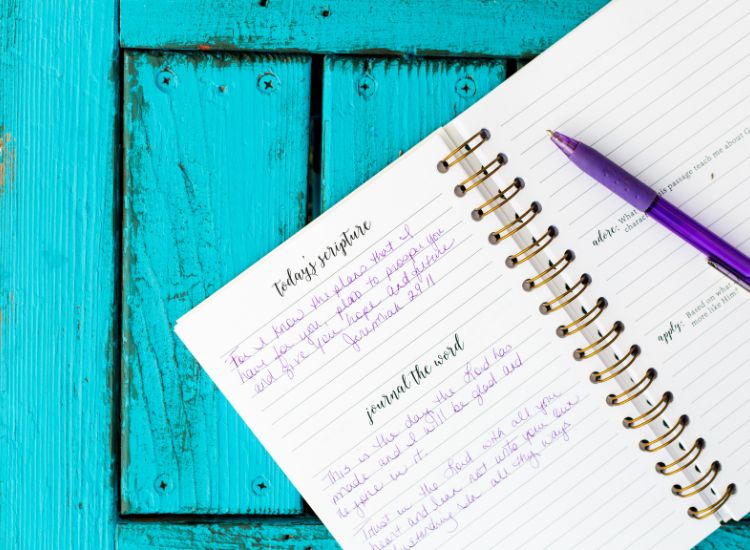 today's scripture
For I know the plans that I
have for you, plan to prosper you
and give you hope and future
Jeremiah 29:11
journal the word
This is the day the Lord has
made and I will be glad and
in it.
Trust in the Lord with all your
heart and lean not unto your own
in all thy ways
this passage teach me about G
adore: What
charac
apply: Based on what
more like Him?